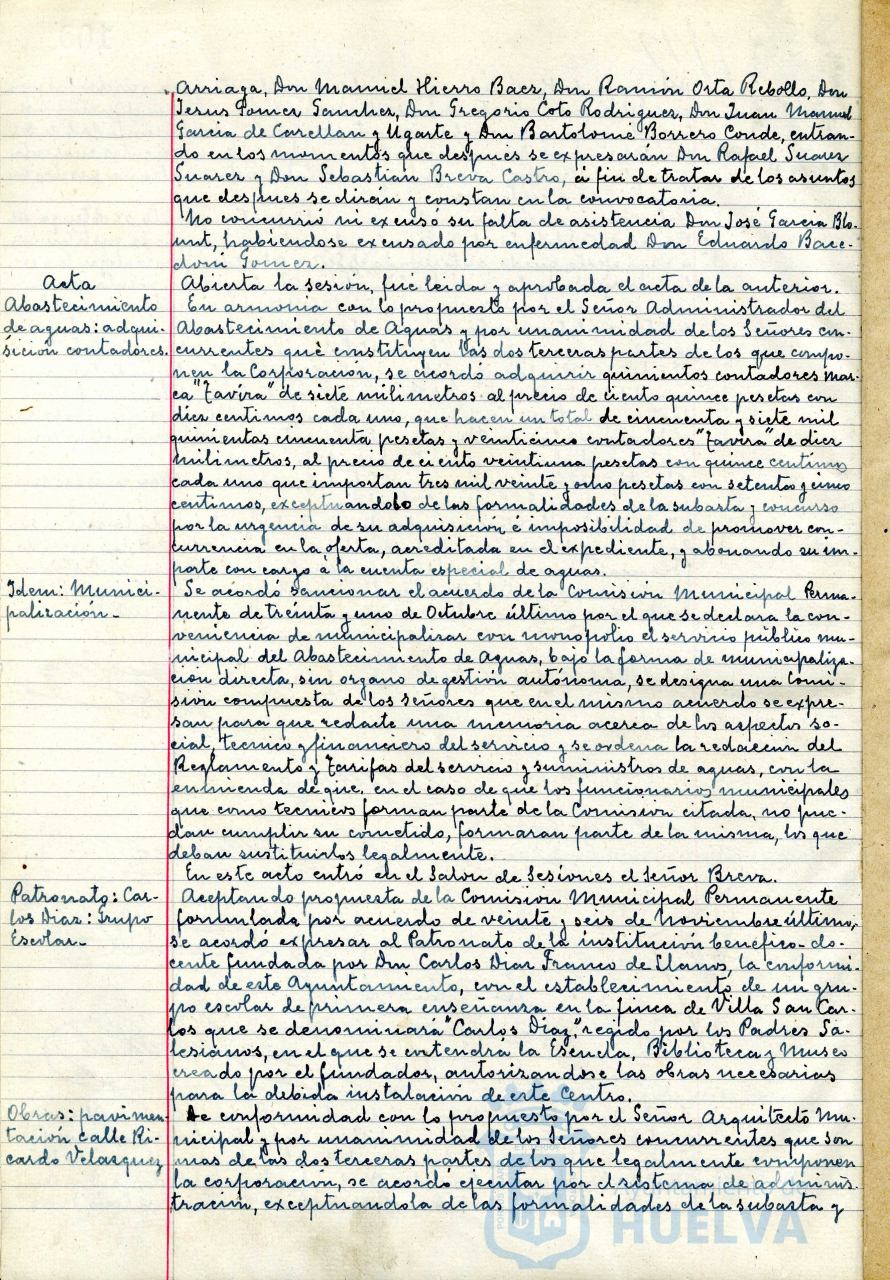 Arriaga, Don Manuel Hierro Baez, Don Ramón Orta Rebollo, Don
Jesus Pomer Sanchez, Don Gregorio Coto Rodriguez, Don Juan Manuel
Garcia de Carellan y Ugarte y Don Bartolomé Borrero Conde, entran-
do en los momentos que despues se expresarán Don Rafael Suarez
Suarez y Don Sebastián Breva Castro, á fin de tratar de los asuntos
que despues se dirán y constan en la convocatoria.
No concurrió ni excusó su falta de asistencia Don José Garcia Blo-
unt, habiendose excusado por enfermedad Don Eduardo Bace-
doni Gomez.
Acta
Abierta la sesión, fué leida y aprobada el acta de la anterior.
Abastecimiento
de aguas: adqui-
sición contadores.
En armonia con lo propuesto por el Señor Administrador del
Abastecimiento de Aguas y por unanimidad de los Señores con-
currentes que constituyen las dos terceras partes de los que compo-
nen la Corporación, se acordó adquirir quinientos contadores mar-
ca "Tavira" de siete milimetros al precio de ciento quince pesetas con
diez centimos cada uno, que hacen un total de cincuenta y siete mil
quinientas cincuenta pesetas y veinticinco contadores "Tavira" de diez
milimetros, al precio de ciento veintiuna pesetas con quince centimos
cada uno que importan tres mil veinte y ocho pesetas con setenta y cinco
centimos, exceptuandolo de las formalidades de la subasta y concurso
por la urgencia de su adquisición é imposibilidad de promover con-
currencia en la oferta, acreditada en el expediente, y abonando su im-
porte con cargo á la cuenta especial de aguas.
Idem: Munici-
palización.-
Se acordó sancionar el acuerdo de la Comisión Municipal Perma-
nente de treinta y uno de Octubre último por el que se declara la con-
veniencia de municipalizar con monopolio el servicio público mu-
nicipal del Abastecimiento de Aguas, bajo la forma de municipaliza-
ción directa, sin organo de gestión autónoma, se designa una Comi-
sión compuesta de los señores que en el mismo acuerdo se expre-
san para que redacte una memoria acerca de los aspectos so-
cial, tecnico y financiero del servicio y se ordena la redacción del
Reglamento y Tarifas del servicio y suministros de aguas, con la
enmienda de que, en el caso de que los funcionarios municipales
que como tecnicos forman parte de la Comisión citada, no pue-
dan cumplir su cometido, formaran parte de la misma, los que
deban sustituirlos legalmente.
En este acto entró en el Salon de Sesiones el Señor Breva.
Patronato: Car-
los Diaz: Grupo
Escolar.-
Aceptando propuesta de la Comisión Municipal Permanente
formulada por acuerdo de veinte y seis de Noviembre último,
se acordó expresar al Patronato de la institución benefico-do-
cente fundada por Don Carlos Diaz Franco de Llanos, la conformi-
dad de este Ayuntamiento, con el establecimiento de un gru-
po escolar de primera enseñanza en la finca de Villa San Car-
los que se denominará "Carlos Diaz", regido por los Padres Sa-
lesianos, en el que se contendrá la Escuela, Biblioteca y Museo
creado por el fundador, autorizandose las obras necesarias
para la debida instalación de este Centro.
Obras: pavimen-
tación calle Ri-
cardo Velazquez
De conformidad con lo propuesto por el Señor Arquitecto Mu-
nicipal y por unanimidad de los Señores concurrentes que son
mas de las dos terceras partes de los que legalmente componen
la corporación, se acordó ejecutar por el sistema de adminis-
tración, exceptuandola de las formalidades de la subasta y
HUELVA